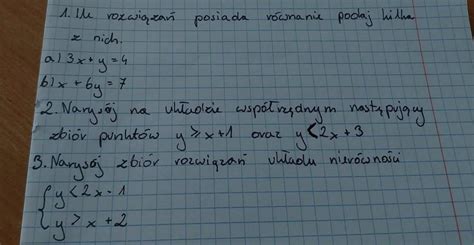 1. Ile rozwiązań posiada równanie podaj kilka
z nich.
a) 3x + y = 4
b) x + 6y = 7
2. Narysój na układzie współrzędnym następujący
zbiór punktów y ≥ x+1 oraz y < 2x + 3
3. Narysój zbiór rozwiązań układu nierówności
{ y < 2x - 1
y > x + 2